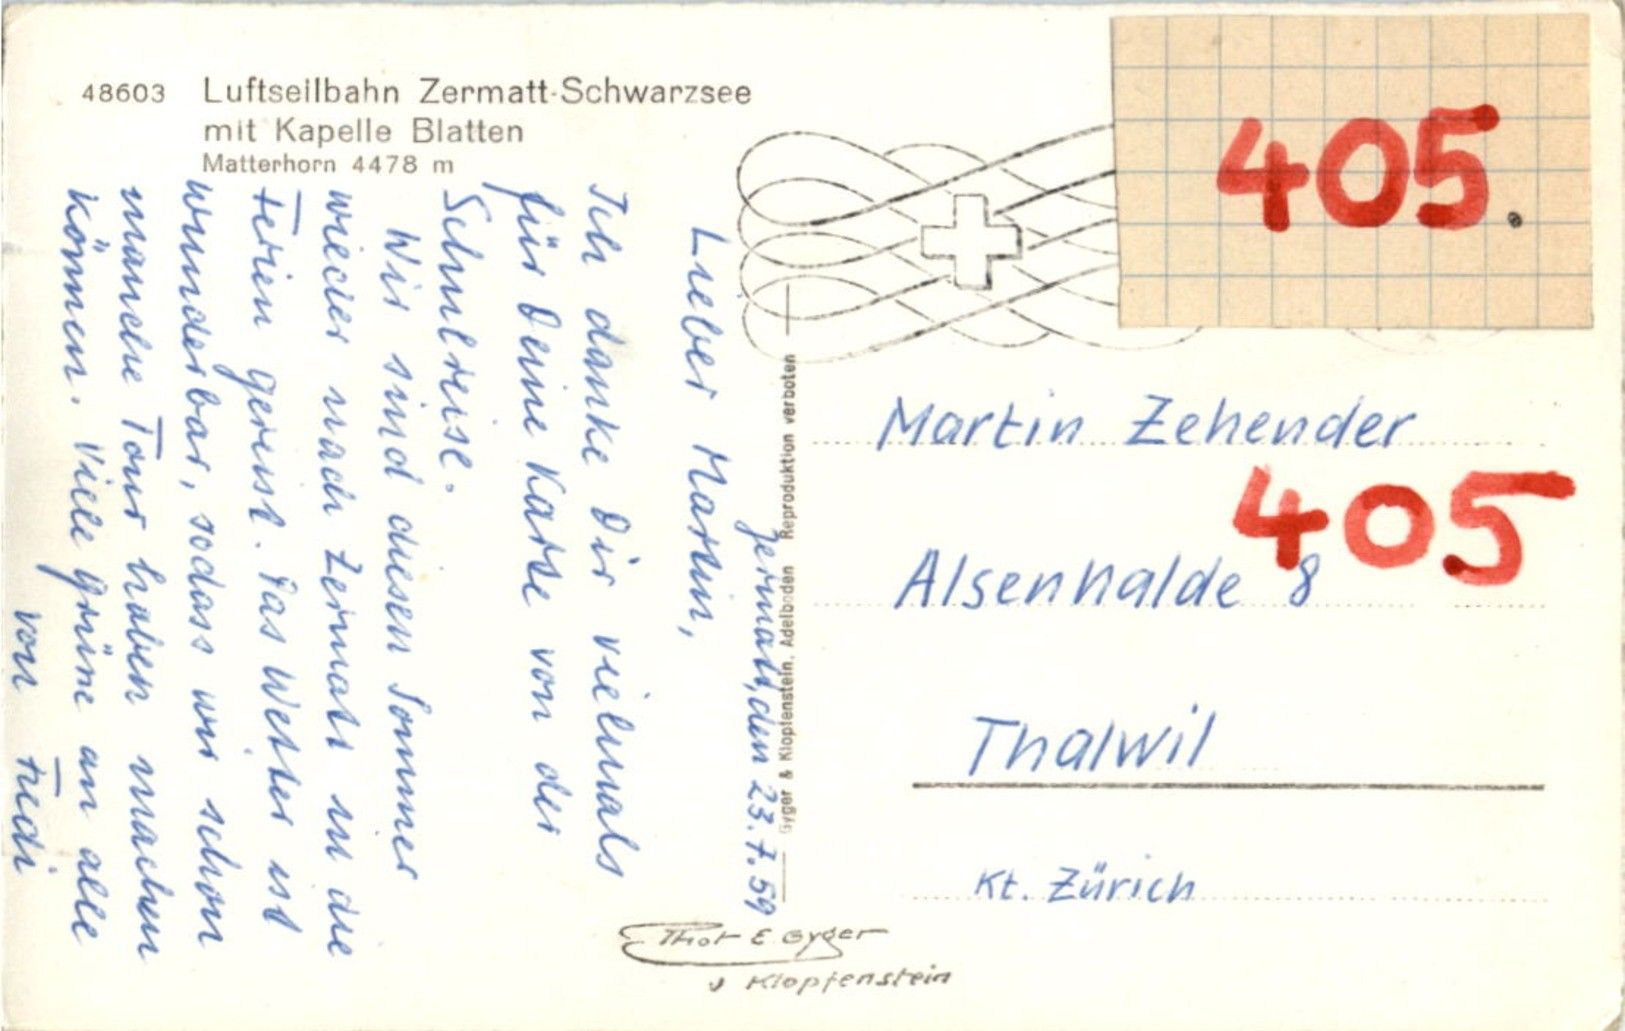 48603 Luftseilbahn Zermatt-Schwarzsee
mit Kapelle Blatten
Matterhorn 4478 m
Zermatt, den 23.7.59
Lieber Martin,
Ich danke Dir vielmals
für Deine Karte von der
Schulreise.
Wir sind diesen Sommer
wieder nach Zermatt in die
Ferien gereist. Das Wetter ist
wunderbar, sodass wir schon
manche Tour haben machen
können. Viele Grüsse an alle
von Fredi
Gyger & Klopfenstein, Adelboden Reproduktion verboten
Phot E. Gyger
u Klopfenstein
405.
Martin Zehender
405
Alsenhalde 8
Thalwil
Kt. Zürich